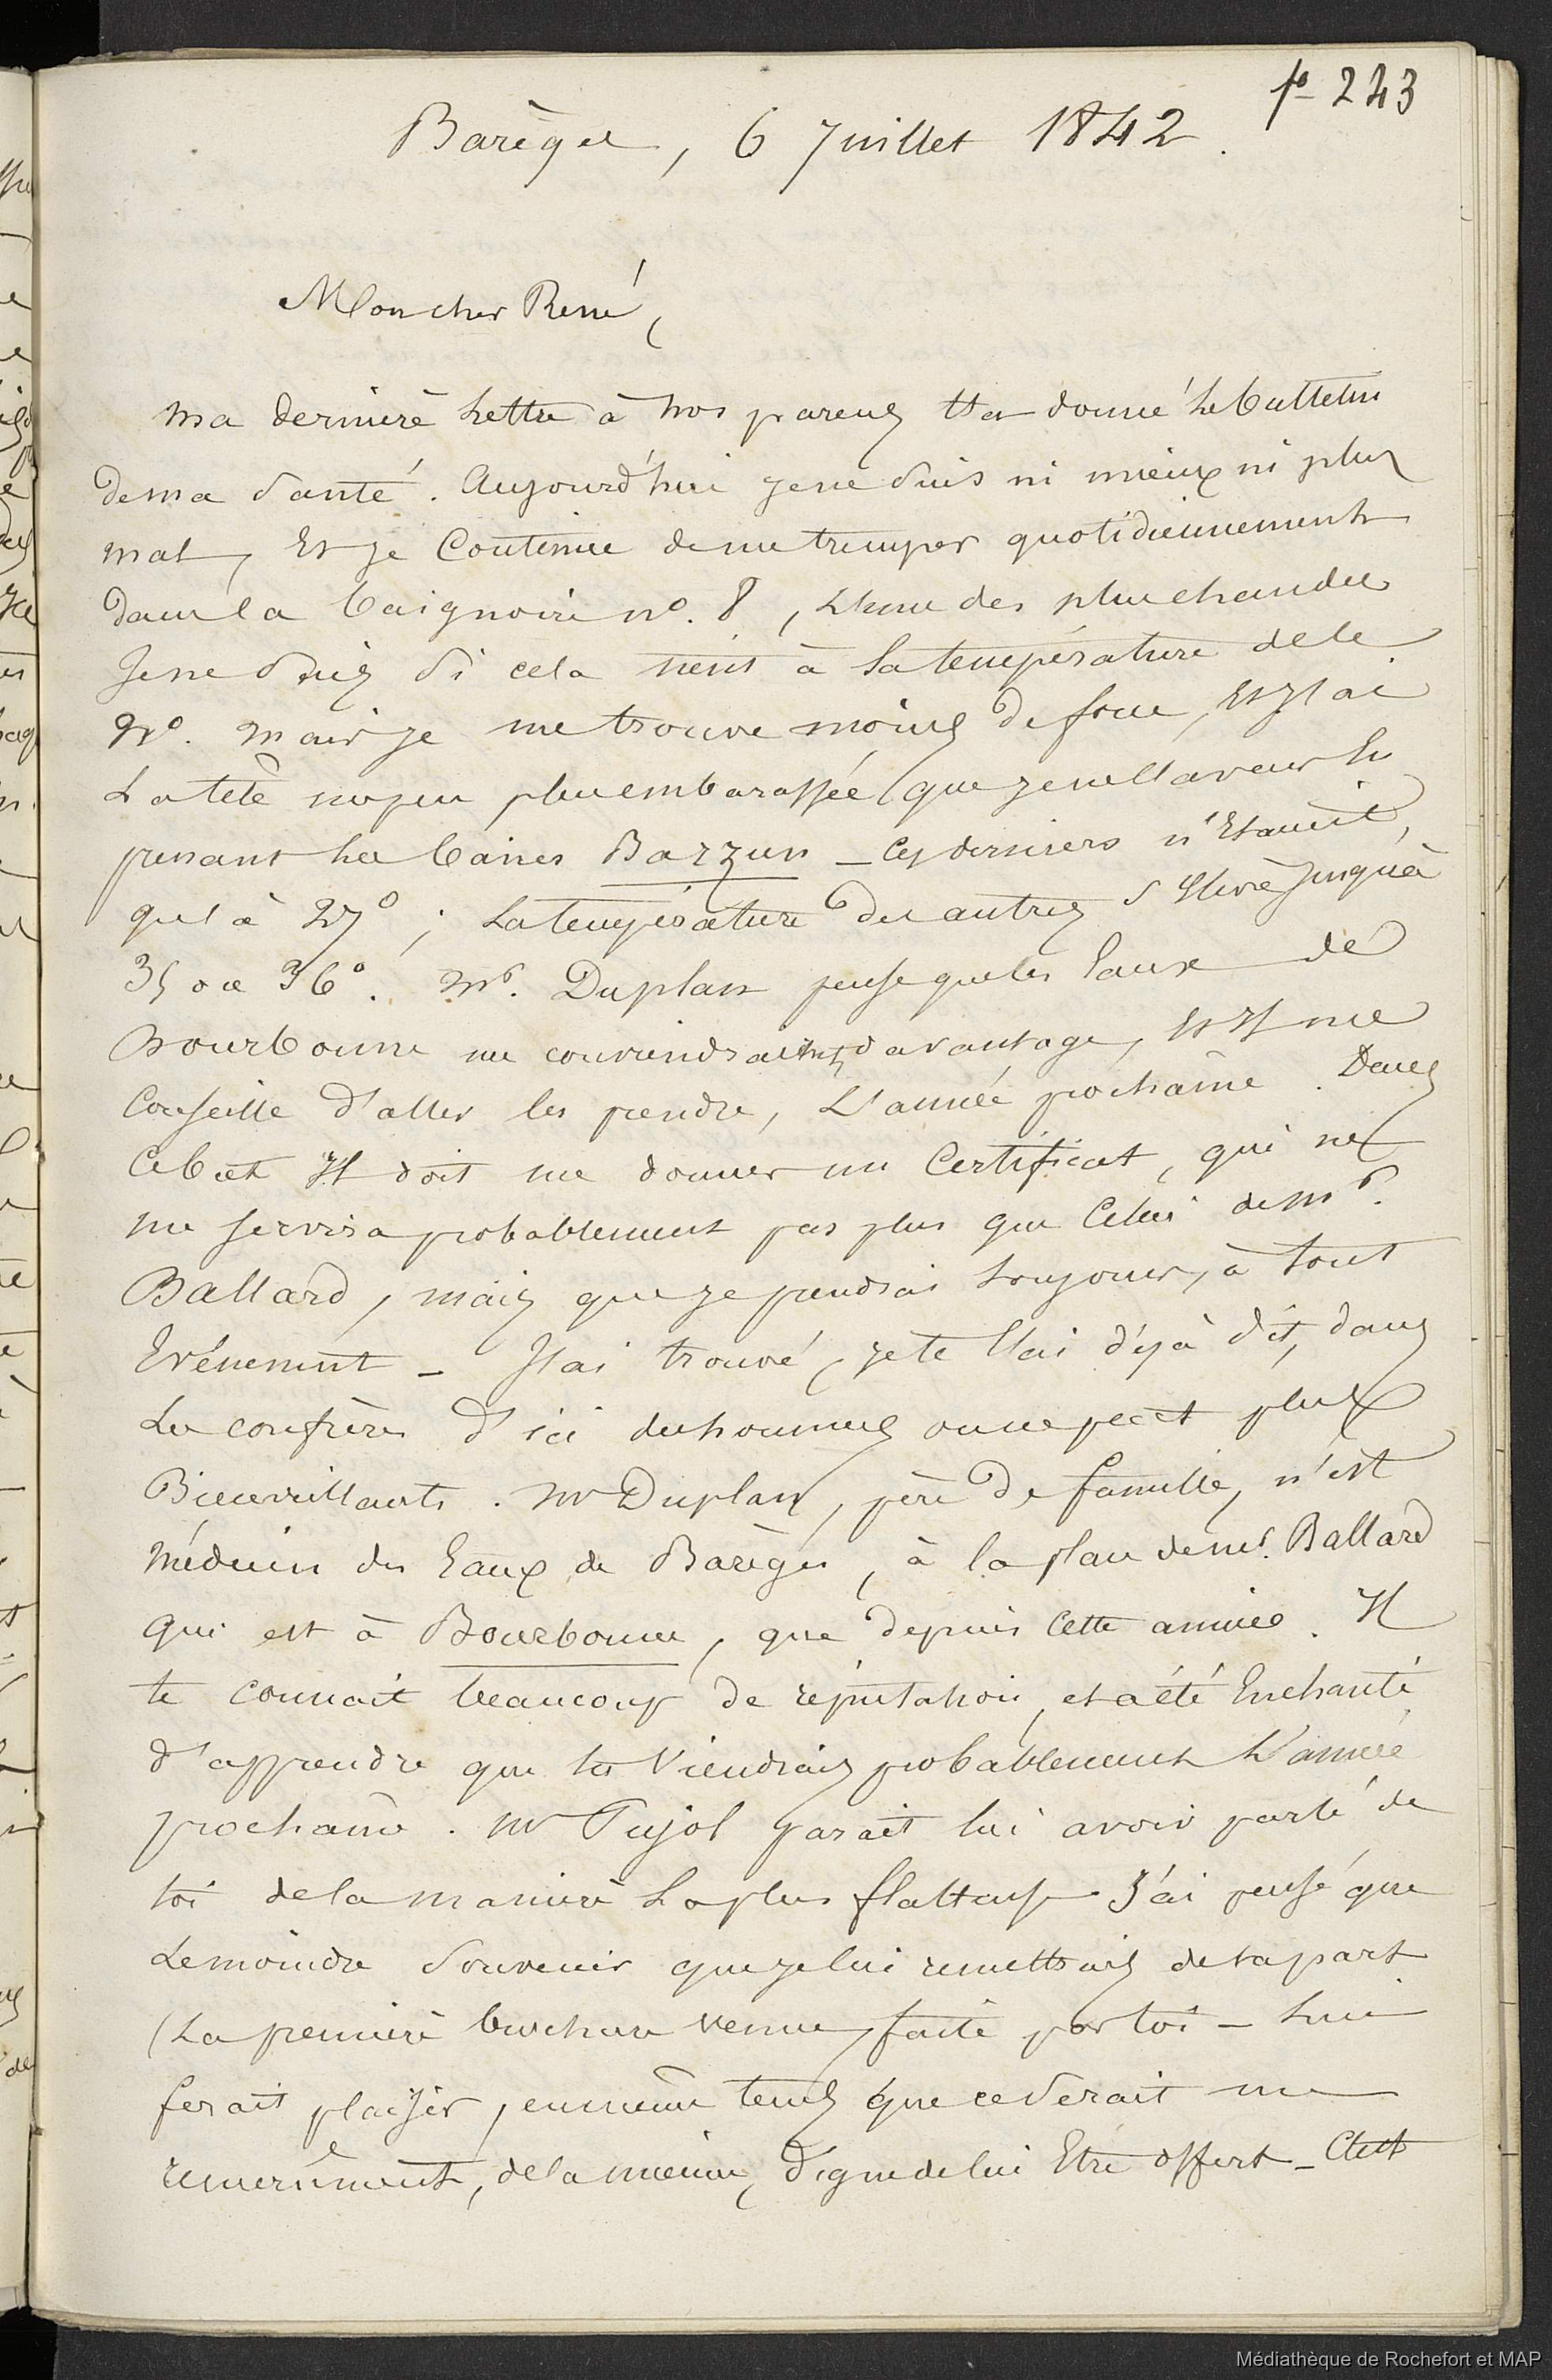 fo 243
Barèges, 6 Juillet 1842.
Mon cher René,
Ma dernière Lettre à nos parens t'a donné Le bulletin
de ma Santé. Aujourd'hui je ne Suis ni mieux ni plus
mal, Et je Continue de me tremper quotidiennement
dans la baignoire no. 8, L'une des plus chaudes
Je ne Sais Si cela tient à La température de le
No. mais je me trouve moins de force, Et J'ai
La tête un peu plus embarassée que je ne l'avais En
prenant Les bains Barzun _ Ces derniers n'Etaient,
qu'à 27° ; La température des autres s'Elève Jusqu'à
35 o a 36°. Mr. Duplan pense que les Eaux de
Bourbonne me conviendraient davantage, Et Il me
Conseille d'aller les prendre, L'année prochaine. Dans
Ce but Il doit me donner un Certificat, qui ne
me servira probablement pas plus que Celui de Mr.
Ballard, mais que je prendrai toujours, à tout
Evénement _ J'ai trouvé, je te l'ai déjà dit, dans
Les confrères d'ici des hommes on ne peut plus
Bienveillants. Mr Duplan, père de famille, n'est
Médecin des Eaux de Barèges, à la place de Mr. Ballard
qui est à Bourbonne, que depuis Cette année. Il
te connait beaucoup de réputation, et a été Enchanté
d'apprendre que tu Viendrais probablement L'année
prochaine. Mr Pujol parait lui avoir parlé de
toi de la manière La plus flatteuse J'ai pensé que
Le moindre Souvenir que je lui remettrais de ta part
(La première brochure venue, faite par toi _ Lui
ferait plaisir, en même tems que ce Serait un
remerciment, de la mienne, digne de lui Etre offert _ C'est
Médiathèque de Rochefort et MAP